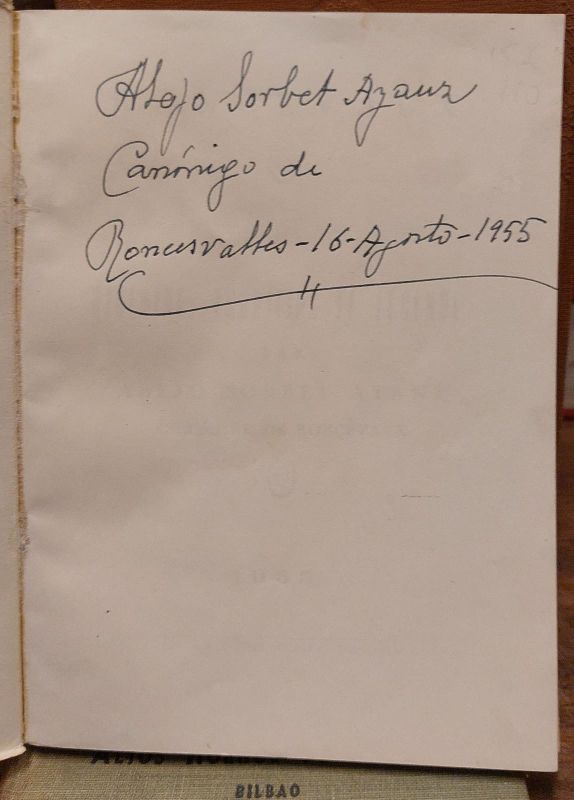 Alejo Sorbet Ayauz
Canónigo de
Roncesvalles - 16 - Agosto - 1955
ALTOS HORNOS
BILBAO